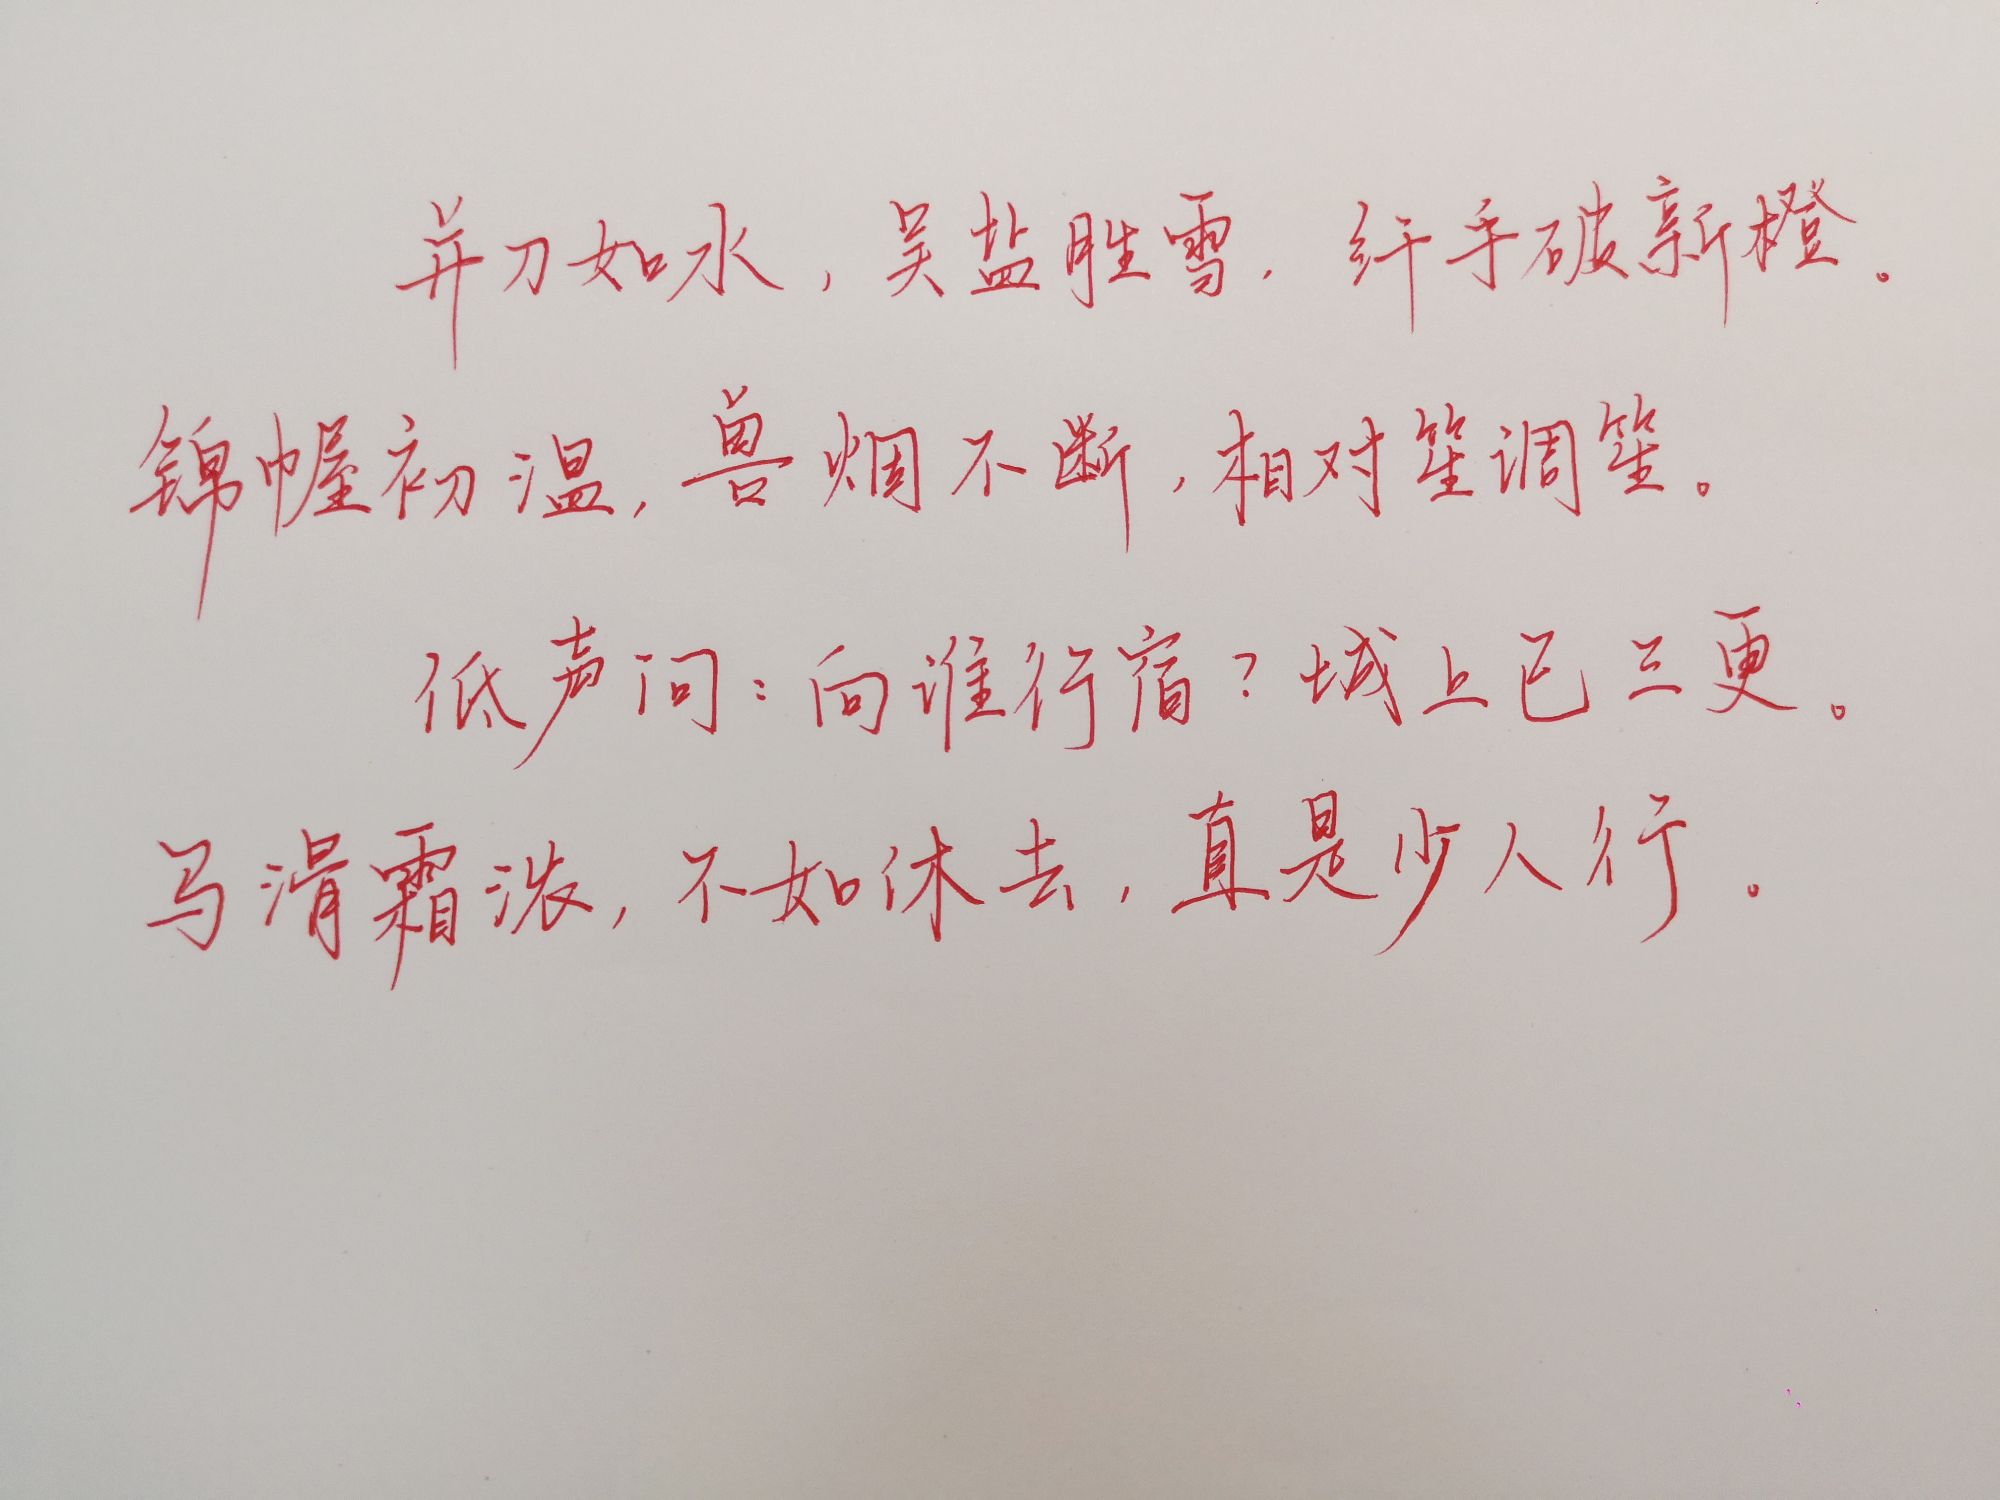 并刀如水，吴盐胜雪，纤手破新橙。
锦幄初温，兽烟不断，相对笙调笙。
低声问：向谁行宿？城上已三更。
马滑霜浓，不如休去，直是少人行。